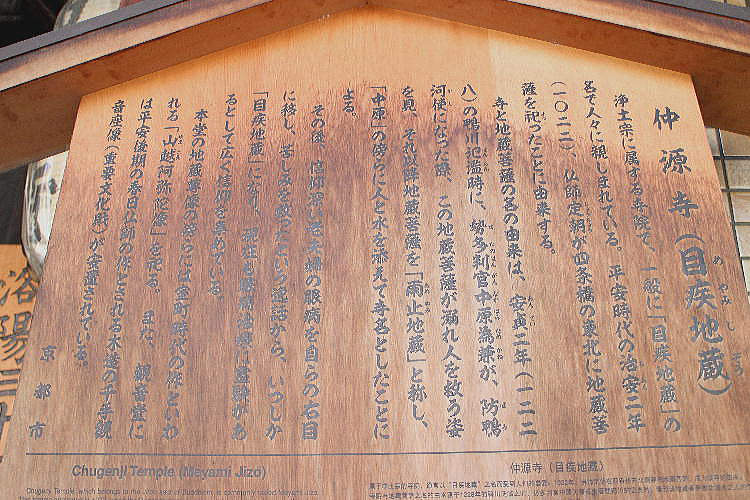 仲源寺(目疾地蔵)
浄土宗に属する寺院で、一般に「目疾地蔵」の
名で人々に親しまれている。平安時代の治安二年
(一〇二二)、仏師定朝が四条橋の東北に地蔵菩
薩を祀ったことに由来する。
寺と地蔵菩薩の名の由来は、安貞二年(一二二
八)の鴨川氾濫時に、勢多判官中原為兼が、防鴨
河使になった際、この地蔵菩薩が溺れ人を救う姿
を見、それ以降地蔵菩薩を「雨止地蔵」と称し、
「中原」の傍らに人と水を添えて寺名としたことに
よる。
その後、信仰深い老夫婦の眼病を自らの右目
に移し、苦しみを救ったという逸話から、いつしか
「目疾地蔵」になり、現在も眼病治療に霊験があ
るとして広く信仰を集めている。
本堂の地蔵尊像の傍らには室町時代の作といわ
れる「山越阿弥陀源」を祀る。また、観音堂に
は平安後期の春日仏師の作とされる木造の千手観
音座像(重要文化財)が安置されている。
京都市
Chugenji Temple (Meyami Jizo)
Chugenji Temple, which belongs to the Jodo sect of Buddhism, is commonly called Meyami Jizo.
仲源寺(目疾地蔵)